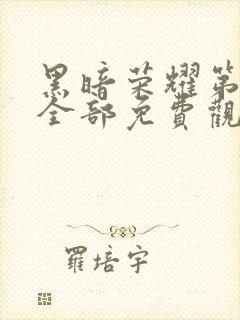 黑暗荣耀第
全部免費觀
羅培宇